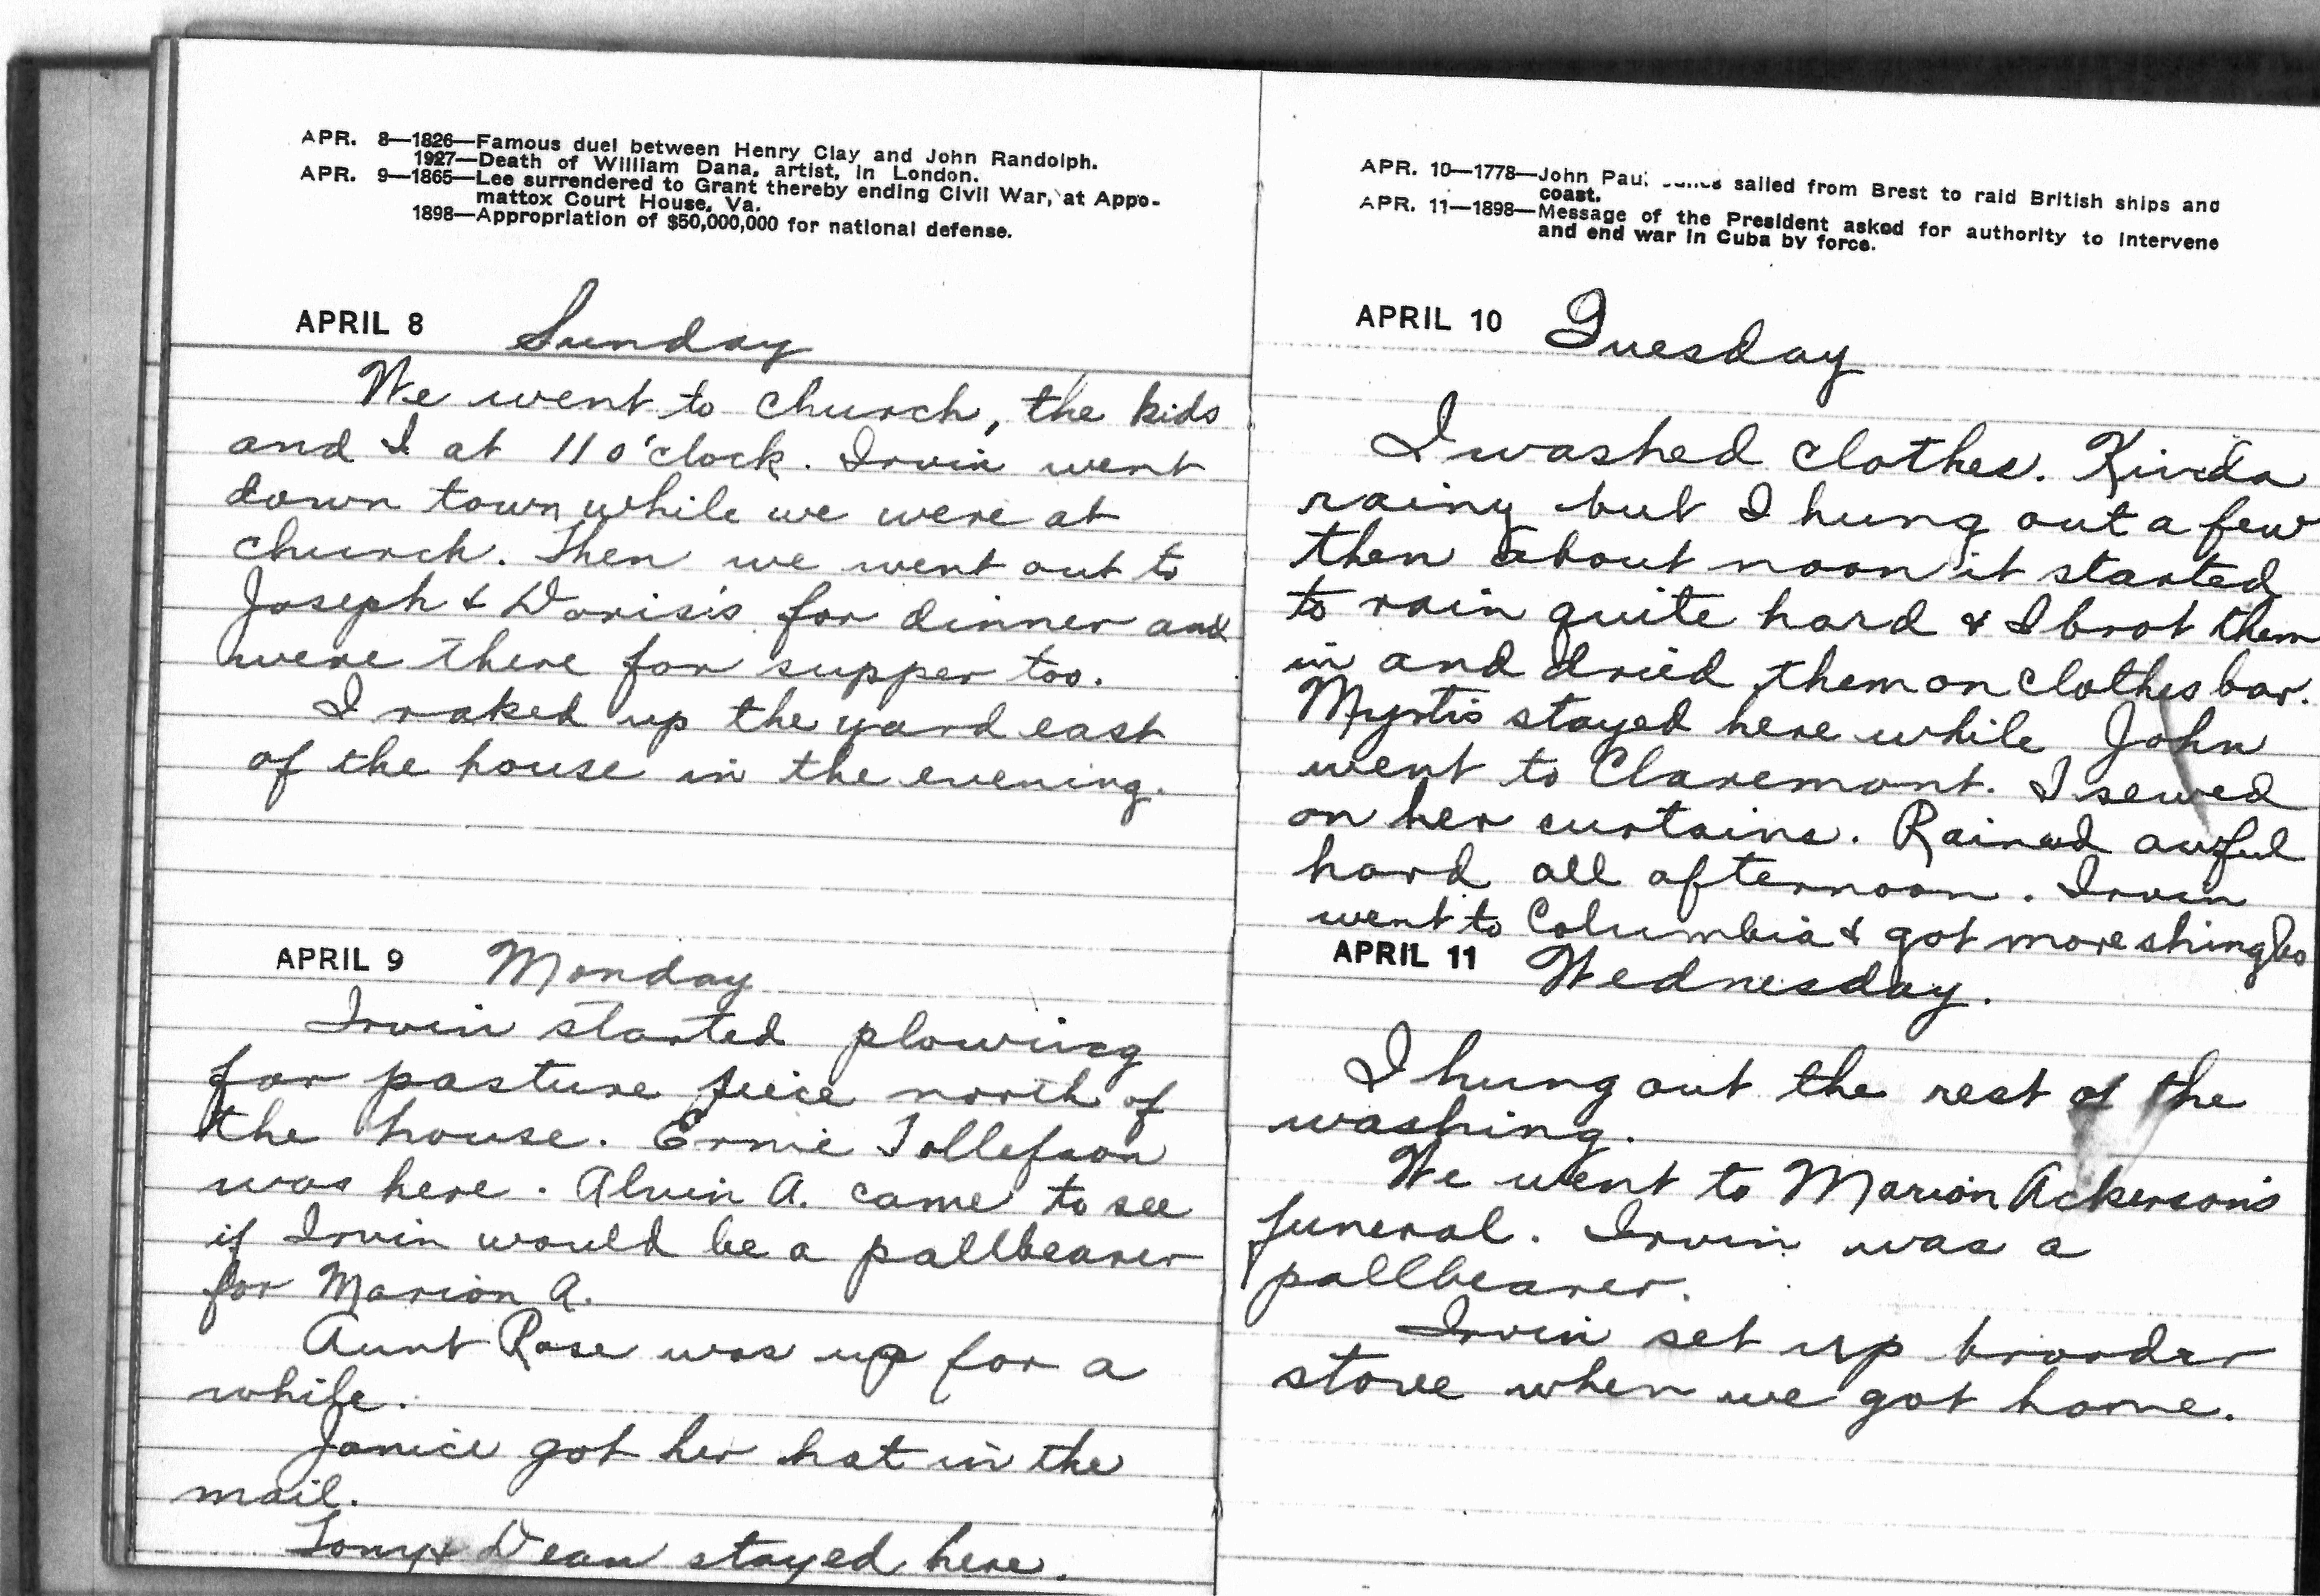 APR. 8—1826—Famous duel between Henry Clay and John Randolph.
1927—Death of William Dana, artist, in London.
APR. 9—1865—Lee surrendered to Grant thereby ending Civil War, at Appo-
mattox Court House, Va.
1898—Appropriation of $50,000,000 for national defense.
APRIL 8 Sunday
We went to church, the kids
and I at 11 o'clock. Irvin went
down town while we were at
church. Then we went out to
Joseph & Doris's for dinner and
were there for supper too.
I raked up the yard east
of the house in the evening.
APRIL 9 Monday
Irvin started plowing
for pasture piece north of
the house. Ernie Tollefson
was here. Alvin A. came to see
if Irvin would be a pallbearer
for Marion A.
Aunt Rose was up for a
while.
Janice got her hat in the
mail.
Tony & Dean stayed here.
APR. 10—1778—John Paul sailed from Brest to raid British ships and
coast.
APR. 11—1898—Message of the President asked for authority to intervene
and end war in Cuba by force.
APRIL 10 Tuesday
I washed clothes. Kinda
rainy but I hung out a few
then about noon it started
to rain quite hard & I brot them
in and dried them on clothes bar.
Myrtis stayed here while John
went to Claremont. I sewed
on her curtains. Rained awful
hard all afternoon. Irvin
went to Columbia & got more shingles
APRIL 11 Wednesday.
I hung out the rest of the
washing.
We went to Marion Ackerson's
funeral. Irvin was a
pallbearer.
Irvin set up brooder
stove when we got home.